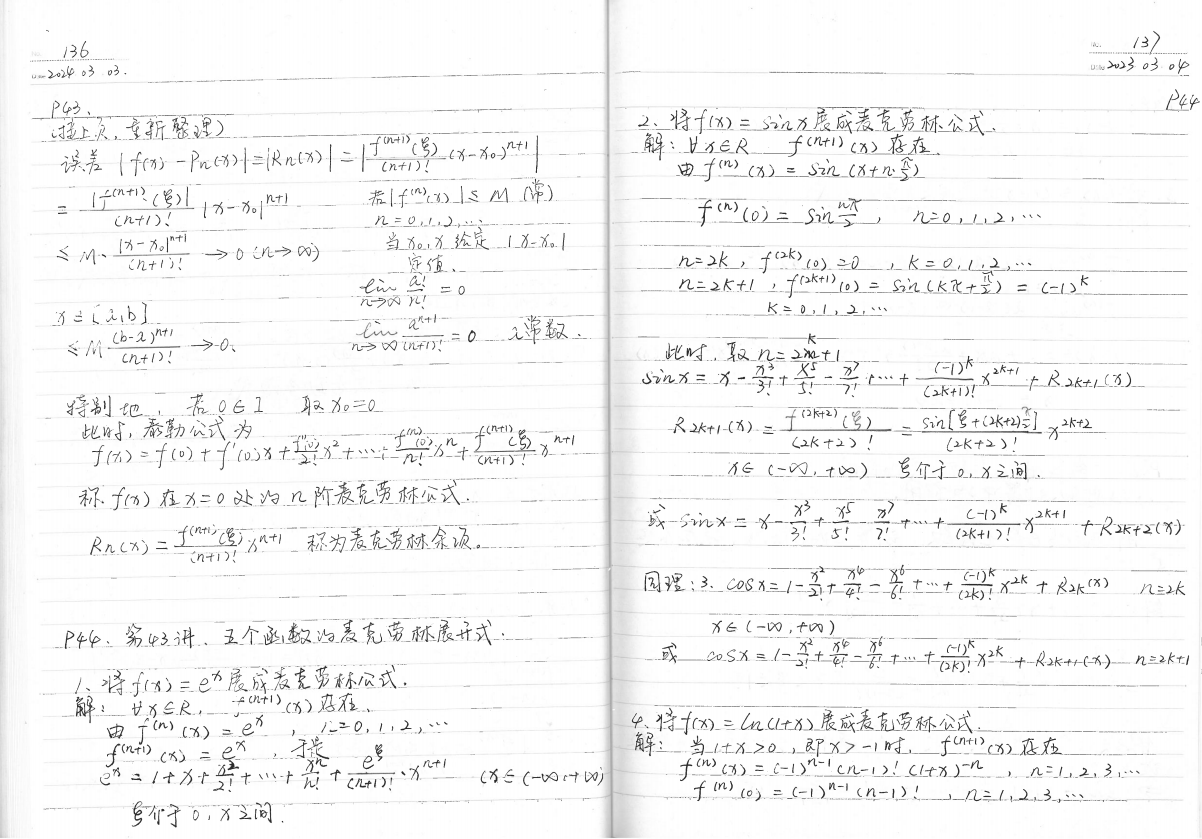 136
2024 03 03.
P43.
(接上页,重新整理)
误差 |f(x) - Pn(x)| = |Rn(x)| = |f^(n+1)(ξ)/(n+1)! (x-x₀)^(n+1)|
= |f^(n+1)(ξ)|/(n+1)! |x-x₀|^(n+1)
≤ M· |x-x₀|^(n+1)/(n+1)! → 0 (n→∞)
若|f^(n)(x)| ≤ M (常)
n=0,1,2,…
当x₀,x给定 |x-x₀|
定值.
lim n→∞ a^n/n! = 0
x∈[a,b]
≤ M (b-a)^(n+1)/(n+1)! → 0.
lim n→∞ a^(n+1)/(n+1)! = 0 a常数.
特别地, 若0∈I 取x₀=0
此时, 泰勒公式为
f(x) = f(0) + f'(0)x + f''(0)/2! x² + … + f^(n)(0)/n! x^n + f^(n+1)(ξ)/(n+1)! x^(n+1)
称f(x)在x=0处的n阶麦克劳林公式.
Rn(x) = f^(n+1)(ξ)/(n+1)! x^(n+1) 称为麦克劳林余项。
P44. 第43讲、五个函数的麦克劳林展开式.
1、将f(x)=e^x展成麦克劳林公式.
解: ∀x∈R, f^(n+1)(x)存在.
由 f^(n)(x) = e^x , n=0,1,2,…
f^(n+1)(x) = e^x , 于是
e^x = 1+x+x²/2!+…+x^n/n! + e^ξ/(n+1)!·x^(n+1) (x∈(-∞,+∞)
ξ介于0,x之间.
137
2023 03 04
P44
2、将f(x)=sinx展成麦克劳林公式.
解: ∀x∈R f^(n+1)(x)存在.
由f^(n)(x) = sin(x+n·π/2)
f^(n)(0) = sin nπ/2 , n=0,1,2,…
n=2k, f^(2k)(0)=0 , k=0,1,2,…
n=2k+1, f^(2k+1)(0) = sin(kπ+π/2) = (-1)^k
k=0,1,2,…
此时,取n=2k+1
sinx = x - x³/3! + x⁵/5! - x⁷/7! + … + (-1)^k/(2k+1)! x^(2k+1) + R2k+1(x)
R2k+1(x) = f^(2k+2)(ξ)/(2k+2)! = sin[ξ+(2k+2)π/2]/(2k+2)! x^(2k+2)
x∈(-∞,+∞) ξ介于0,x之间.
或 sinx = x - x³/3! + x⁵/5! - x⁷/7! + … + (-1)^k/(2k+1)! x^(2k+1) + R2k+2(x)
同理:3、cosx = 1 - x²/2! + x⁴/4! - x⁶/6! + … + (-1)^k/(2k)! x^2k + R2k(x) n=2k
x∈(-∞,+∞)
或 cosx = 1 - x²/2! + x⁴/4! - x⁶/6! + … + (-1)^k/(2k)! x^2k + R2k+1(x) n=2k+1
4、将f(x)=ln(1+x)展成麦克劳林公式.
解: 当1+x>0, 即x>-1时, f^(n+1)(x)存在
f^(n)(x) = (-1)^(n-1) (n-1)! (1+x)^-n , n=1,2,3,…
f^(n)(0) = (-1)^(n-1) (n-1)! , n=1,2,3,…